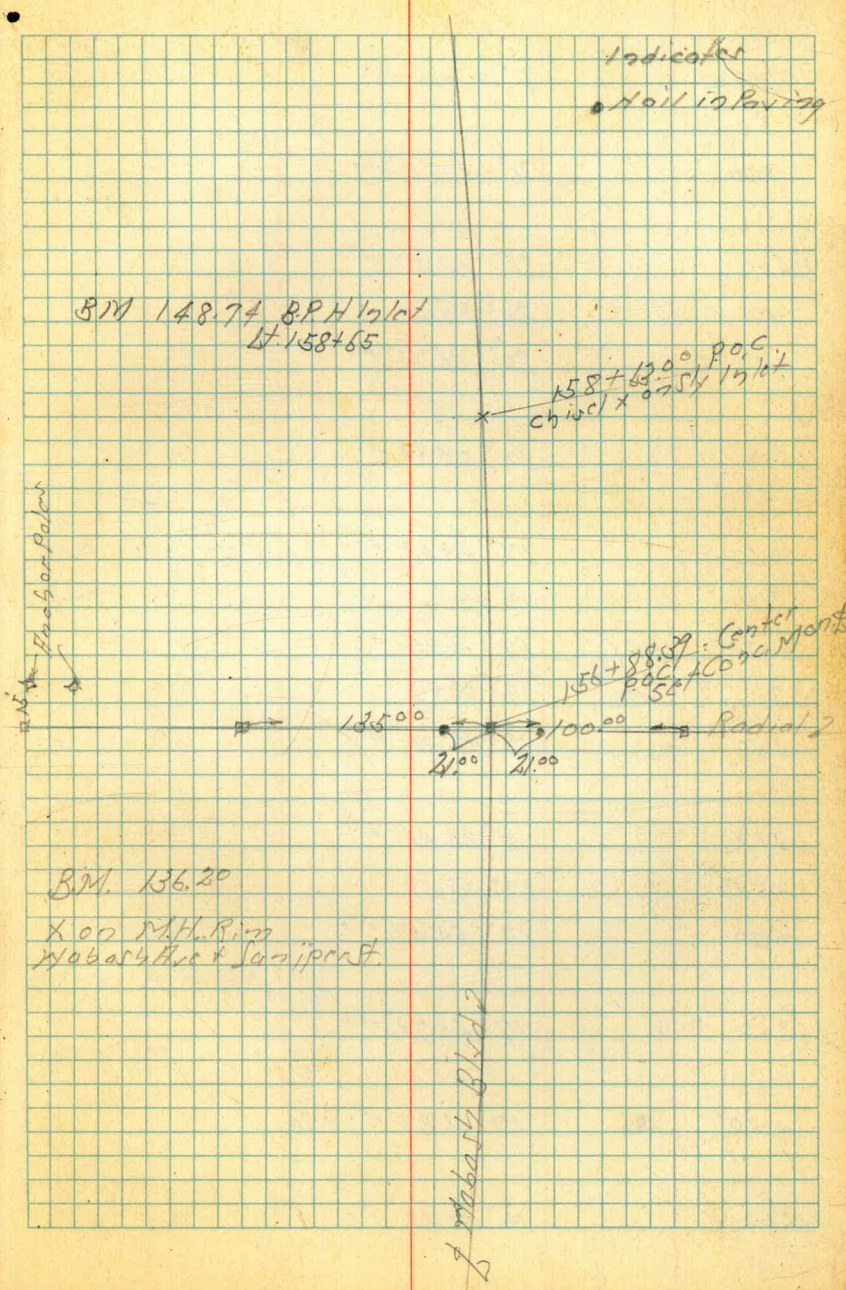 Indicates
Nail in Paving
BM 148.74 B.P.H Inlet
Lt. 158+65
158+13.00 P.O.C.
Chisel x on Sly Inlet
Anchor Poles
15'
156+88.59 = Center
P.O.C. Set Conc. Mon't
135.00
100.00
Radial
21.00 21.00
B.M. 136.20
X on M.H. Rim
Wabash Ave & Juniper St.
Wabash Blvd